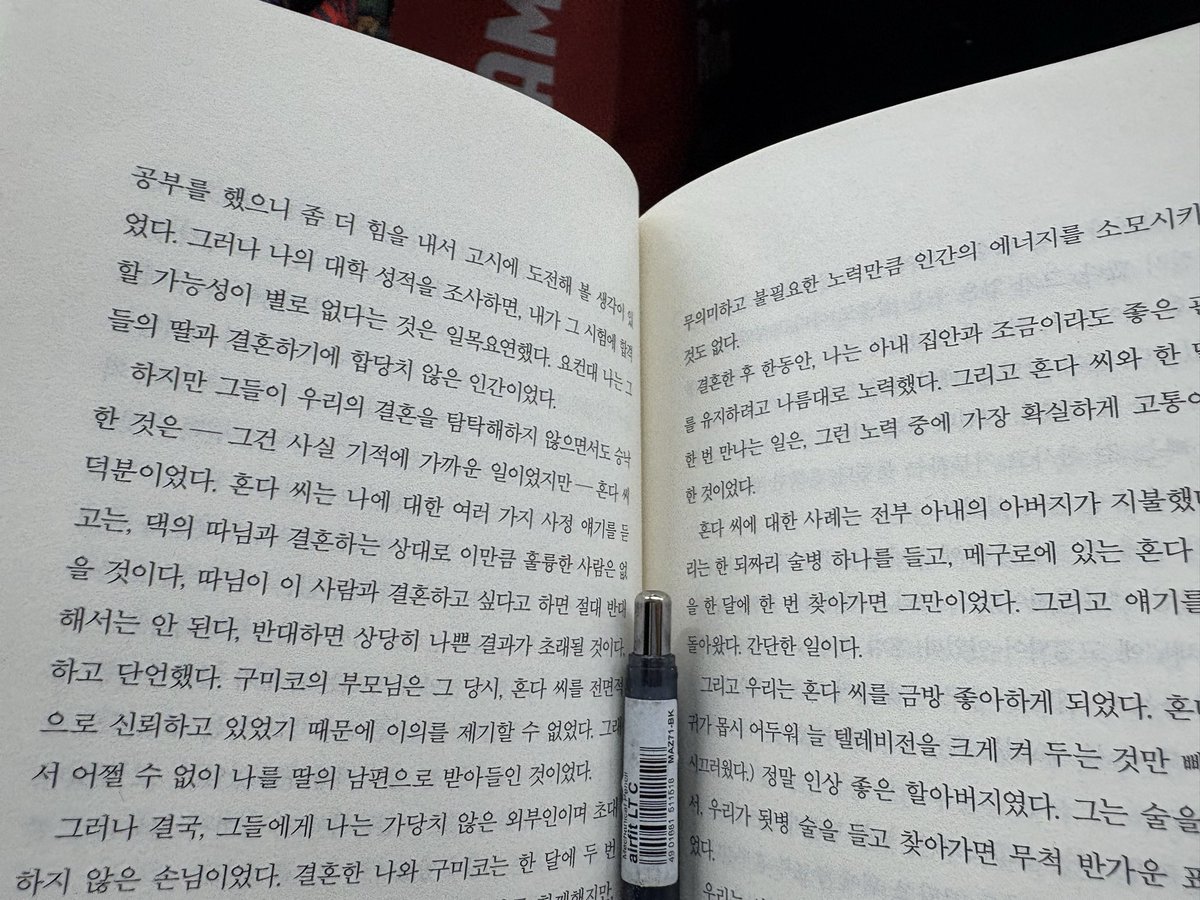 AM
공부를 했으니 좀 더 힘을 내서 고시에 도전해 볼 생각이 있
었다. 그러나 나의 대학 성적을 조사하면, 내가 그 시험에 합격
할 가능성이 별로 없다는 것은 일목요연했다. 요컨대 나는 그
들의 딸과 결혼하기에 합당치 않은 인간이었다.
하지만 그들이 우리의 결혼을 탐탁해하지 않으면서도 승낙
한 것은 ― 그건 사실 기적에 가까운 일이었지만 ― 혼다 씨
덕분이었다. 혼다 씨는 나에 대한 여러 가지 사정 얘기를 듣
고는, 댁의 따님과 결혼하는 상대로 이만큼 훌륭한 사람은 없
을 것이다, 따님이 이 사람과 결혼하고 싶다고 하면 절대 반대
해서는 안 된다, 반대하면 상당히 나쁜 결과가 초래될 것이다,
하고 단언했다. 구미코의 부모님은 그 당시, 혼다 씨를 전면적
으로 신뢰하고 있었기 때문에 이의를 제기할 수 없었다. 그래
서 어쩔 수 없이 나를 딸의 남편으로 받아들인 것이었다.
그러나 결국, 그들에게 나는 가당치 않은 외부인이며 초대
하지 않은 손님이었다. 결혼한 나와 구미코는 한 달에 두 번
무의미하고 불필요한 노력만큼 인간의 에너지를 소모시키
것도 없다.
결혼한 후 한동안, 나는 아내 집안과 조금이라도 좋은
를 유지하려고 나름대로 노력했다. 그리고 혼다 씨와 한
한 번 만나는 일은, 그런 노력 중에 가장 확실하게 고통이
한 것이었다.
혼다 씨에 대한 사례는 전부 아내의 아버지가 지불했
리는 한 되짜리 술병 하나를 들고, 메구로에 있는 혼다
을 한 달에 한 번 찾아가면 그만이었다. 그리고 얘기를
돌아왔다. 간단한 일이다.
그리고 우리는 혼다 씨를 금방 좋아하게 되었다. 혼다
귀가 몹시 어두워 늘 텔레비전을 크게 켜 두는 것만
시끄러웠다.) 정말 인상 좋은 할아버지였다. 그는 술을
서, 우리가 됫병 술을 들고 찾아가면 무척 반가운 표
었다.
우리는
airfit LT C
MAZ71-BK